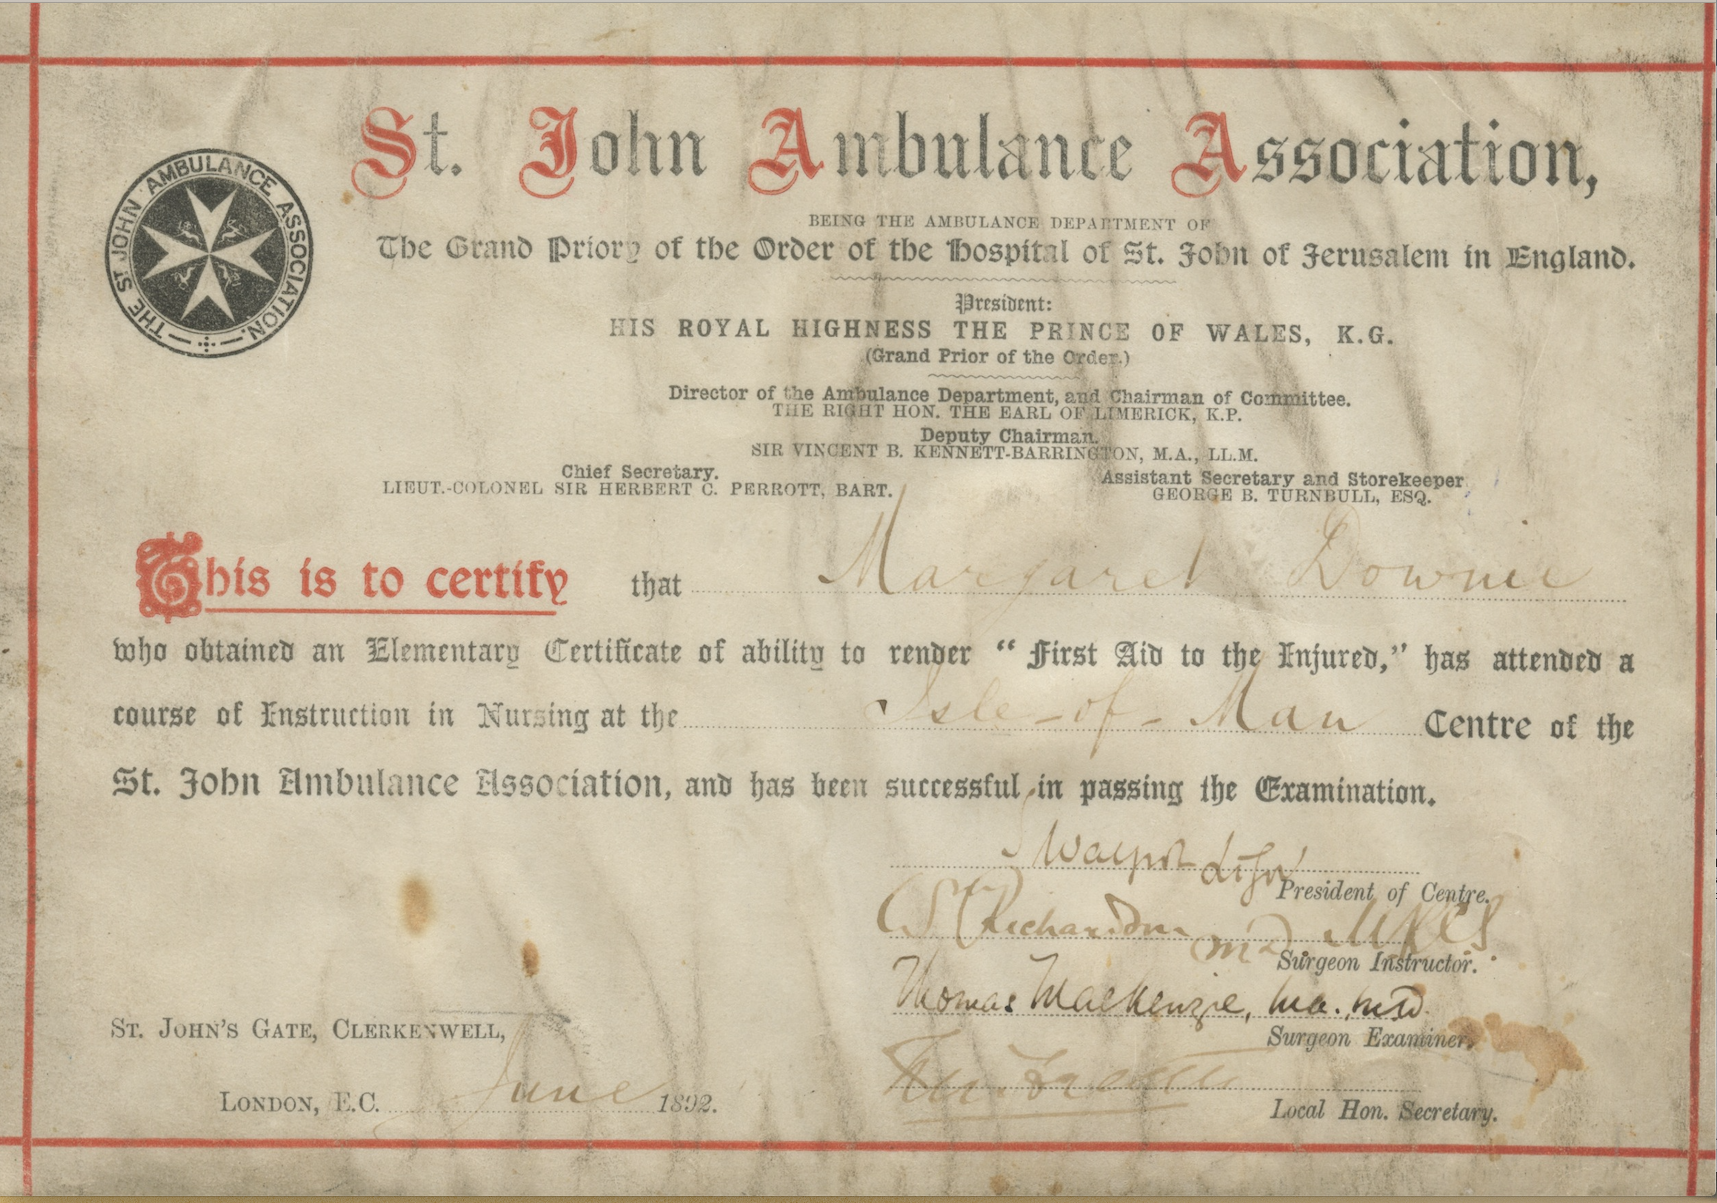 THE ST JOHN AMBULANCE ASSOCIATION.
St. John Ambulance Association,
BEING THE AMBULANCE DEPARTMENT OF
The Grand Priory of the Order of the Hospital of St. John of Jerusalem in England.
President:
HIS ROYAL HIGHNESS THE PRINCE OF WALES, K.G.
(Grand Prior of the Order.)
Director of the Ambulance Department, and Chairman of Committee.
THE RIGHT HON. THE EARL OF LIMERICK, K.P.
Deputy Chairman.
SIR VINCENT B. KENNETT-BARRINGTON, M.A., LL.M.
Chief Secretary.
LIEUT.-COLONEL SIR HERBERT C. PERROTT, BART.
Assistant Secretary and Storekeeper
GEORGE B. TURNBULL, ESQ.
This is to certify that Margaret Downie
who obtained an Elementary Certificate of ability to render "First Aid to the Injured," has attended a
course of Instruction in Nursing at the Isle-of-Man Centre of the
St. John Ambulance Association, and has been successful in passing the Examination.
President of Centre.
Richardson MD
Surgeon Instructor.
Thomas Mackenzie, Ma., MD.
Surgeon Examiner.
Local Hon. Secretary.
ST. JOHN'S GATE, CLERKENWELL,
LONDON, E.C. June 1892.